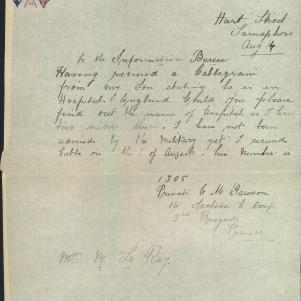 Hart Street
Semaphore
Aug 14
To the Information Bureau
Having received a Cablegram
from my Son stating he is in
Hospital England Could you please
find out the name of Hospital as I have
two sisters there. I have not been
warned by the Military yet I received
Cable on the 1 of August. his Number is
1305
Private C M Dawson
16 Section C Comp
3rd Brigade
France
Mrs M Le Ray